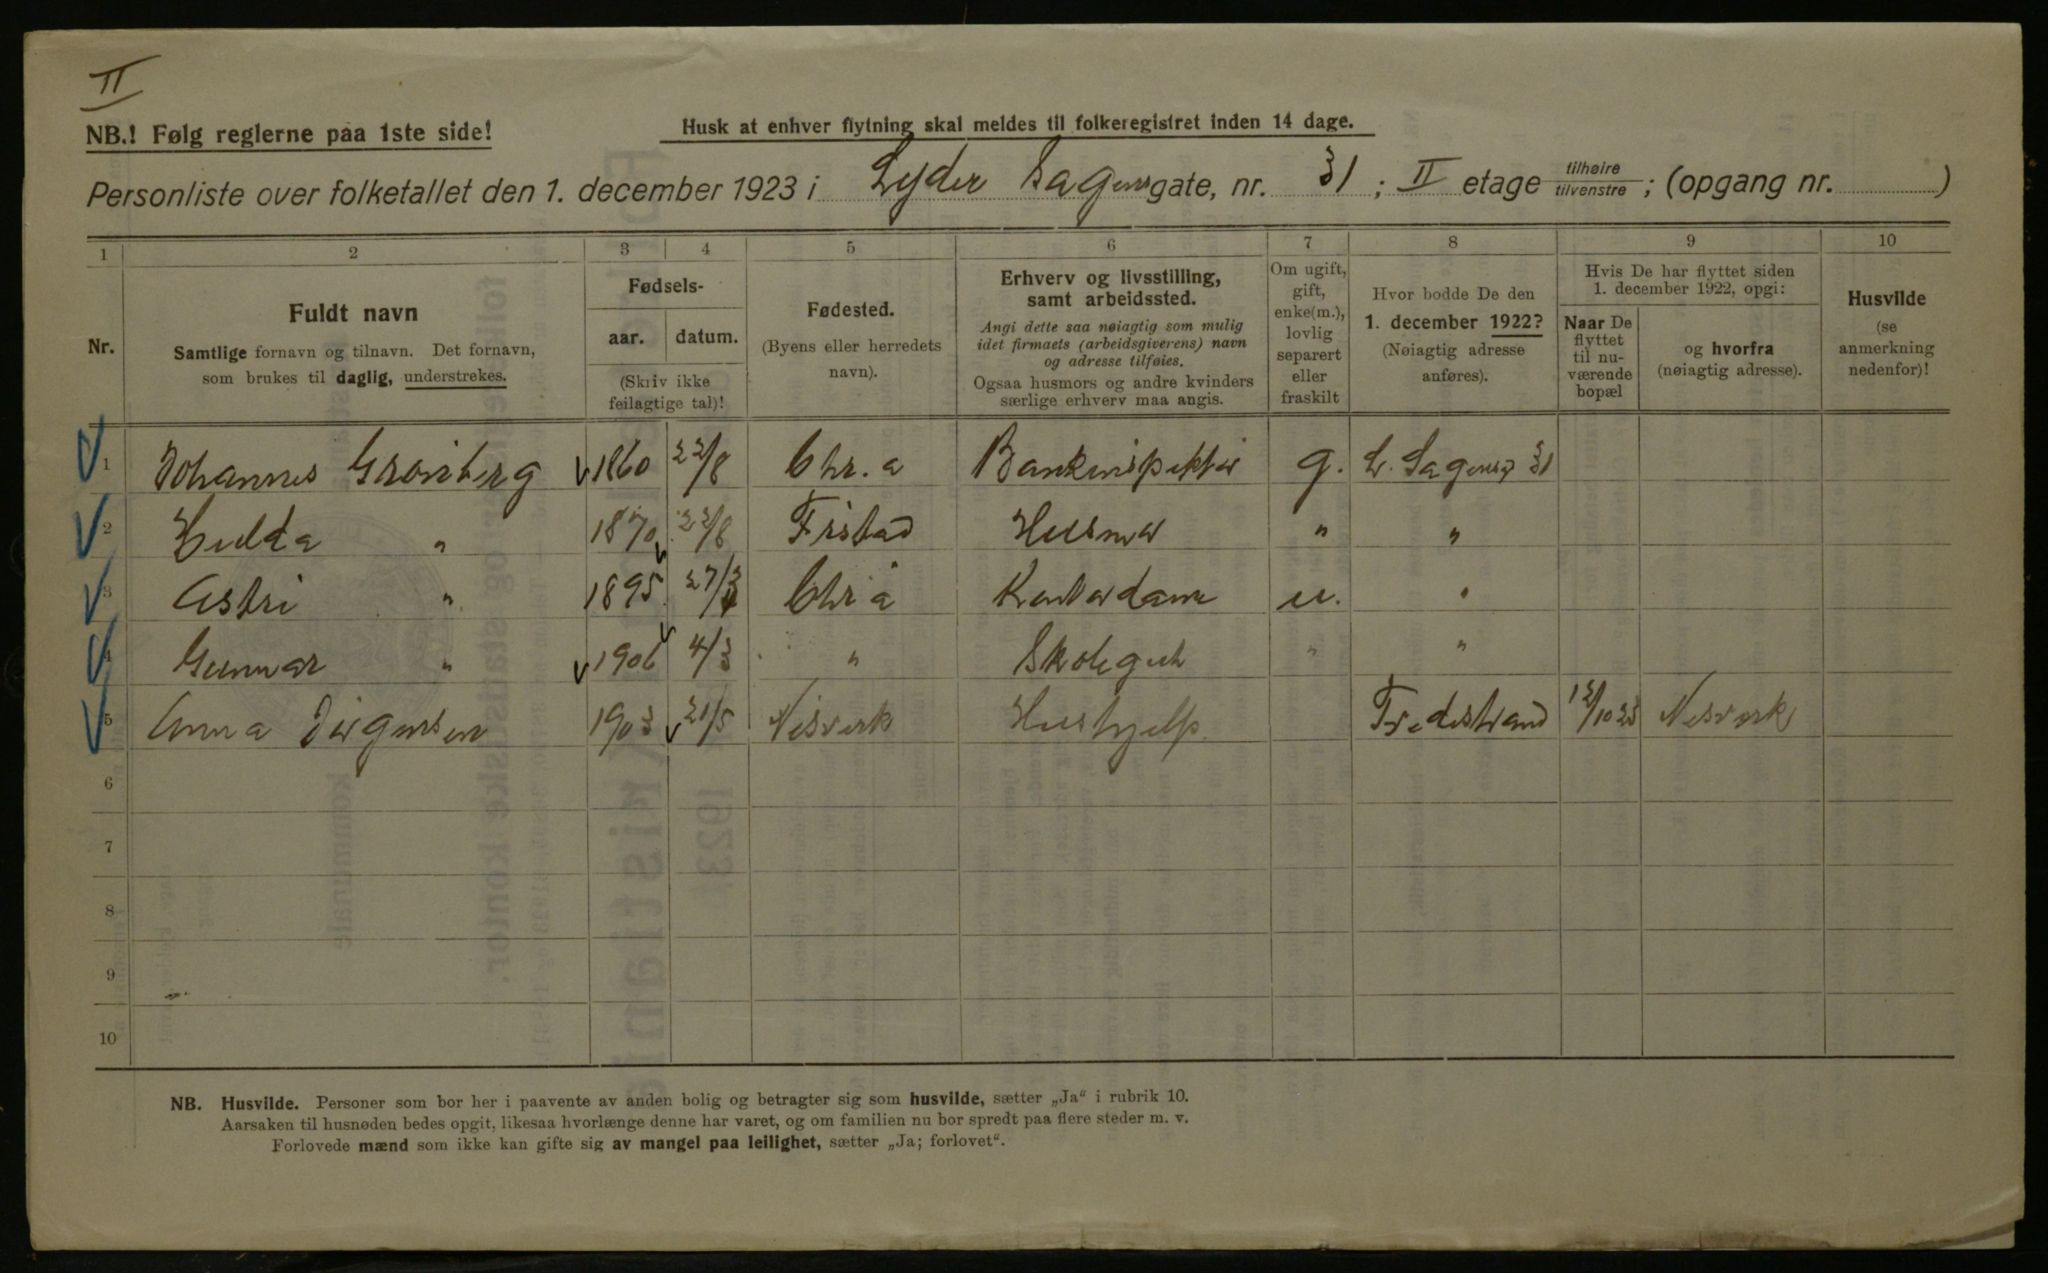 II
NB.! Følg reglerne paa 1ste side!
Husk at enhver flytning skal meldes til folkeregistret inden 14 dage.
Personliste over folketallet den 1. december 1923 i Lyder Sagensgate, nr. 31 ; II etage tilhøire tilvenstre ; (opgang nr. )
1 2 3 4 5 6 7 8 9 10
Nr.
Fuldt navn
Samtlige fornavn og tilnavn. Det fornavn,
som brukes til daglig, understrekes.
Fødsels-
aar. datum.
(Skriv ikke
feilagtige tal)!
Fødested.
(Byens eller herredets
navn).
Erhverv og livsstilling,
samt arbeidssted.
Angi dette saa nøiagtig som mulig
idet firmaets (arbeidsgiverens) navn
og adresse tilføies.
Ogsaa husmors og andre kvinders
særlige erhverv maa angis.
Om ugift,
gift,
enke(m.),
lovlig
separert
eller
fraskilt
Hvor bodde De den
1. december 1922?
(Nøiagtig adresse
anføres).
Hvis De har flyttet siden
1. december 1922, opgi:
Naar De
flyttet
til nu-
værende
bopæl
og hvorfra
(nøiagtig adresse).
Husvilde
(se
anmerkning
nedenfor)!
1 Johannes Grønberg 1860 22/8 Chr.a Bankinspektør g. L. Sagensg 31
2 Hulda " 1870 22/8 Fr.stad Husmor " "
3 Astri " 1895 27/3 Chr a Kontordame u. "
4 Gunnar " 1906 4/3 " Skolegut " "
5 Anna Jørgensen 1903 21/5 Nesverk Hushjelp Tvedestrand 12/10 23 Nesverk
6
7
8
9
10
NB. Husvilde. Personer som bor her i paavente av anden bolig og betragter sig som husvilde, sætter „Ja“ i rubrik 10.
Aarsaken til husnøden bedes opgit, likesaa hvorlænge denne har varet, og om familien nu bor spredt paa flere steder m. v.
Forlovede mænd som ikke kan gifte sig av mangel paa leilighet, sætter „Ja; forlovet“.